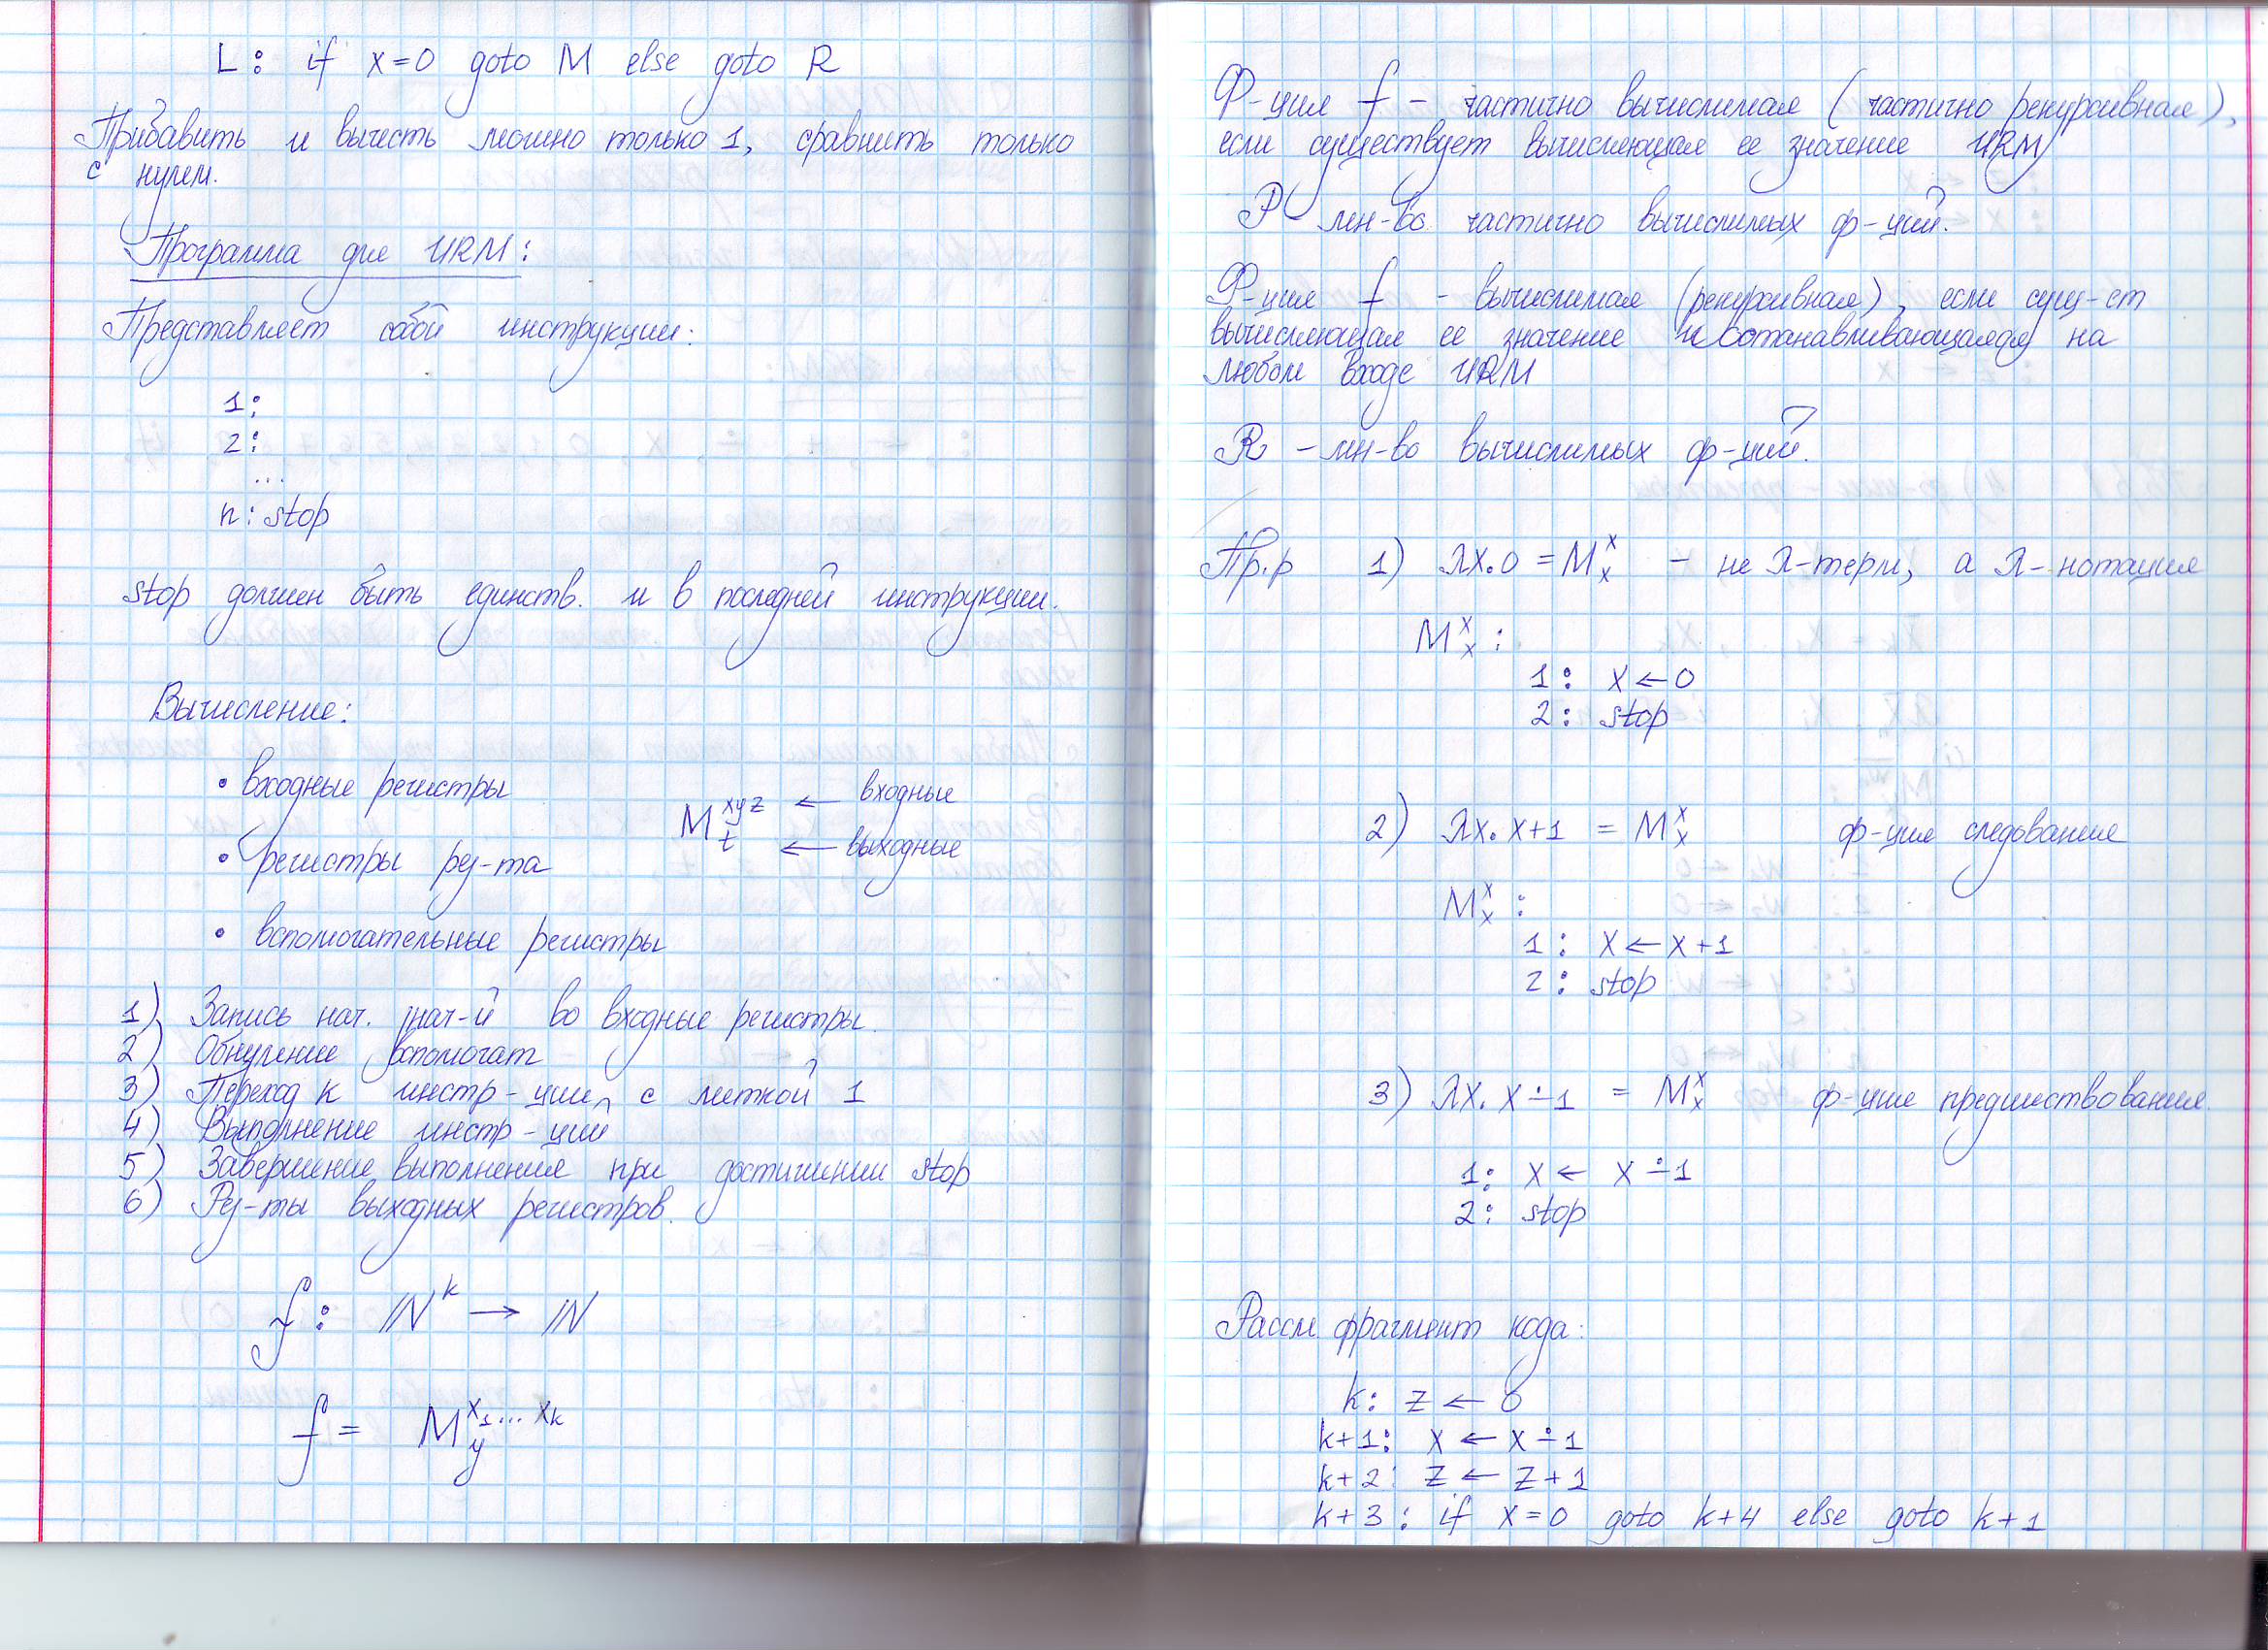 L: if x=0 goto M else goto R
Прибавить и вычесть можно только 1, сравнить только
с нулем.
Программа для URM:
Представляет собой инструкции:
1:
2:
...
n: stop
stop должен быть единств. и в последней инструкции.
Вычисление:
• входные регистры
• регистры рез-та
• вспомогательные регистры
M^{xyz}_t ← входные
← выходные
1) Запись нач. знач-й во входные регистры.
2) Обнуление вспомогат
3) Переход к инстр-ции с меткой 1
4) Выполнение инстр-ций
5) Завершение выполнения при достижении stop
6) Рез-ты выходных регистров.
f: ℕ^k → ℕ
f = M^{x₁...x_k}_y
Ф-ция f – частично вычислимая (частично рекурсивная),
если существует вычисляющая ее значение URM
P мн-во частично вычислимых ф-ций.
Ф-ция f - вычислимая (рекурсивная), если сущ-ет
вычисляющая ее значение и останавливающаяся на
любом входе URM
R – мн-во вычислимых ф-ций.
Пр.р 1) λx.0 = M^x_x – не λ-терм, а λ-нотация
M^x_x :
1: x ← 0
2: stop
2) λx. x+1 = M^x_x ф-ция следования
M^x_x :
1: x ← x+1
2: stop
3) λx. x ∸ 1 = M^x_x ф-ция предшествования.
1: x ← x ∸ 1
2: stop
Рассм. фрагмент кода:
k: z ← 0
k+1: x ← x ∸ 1
k+2: z ← z+1
k+3: if x=0 goto k+4 else goto k+1